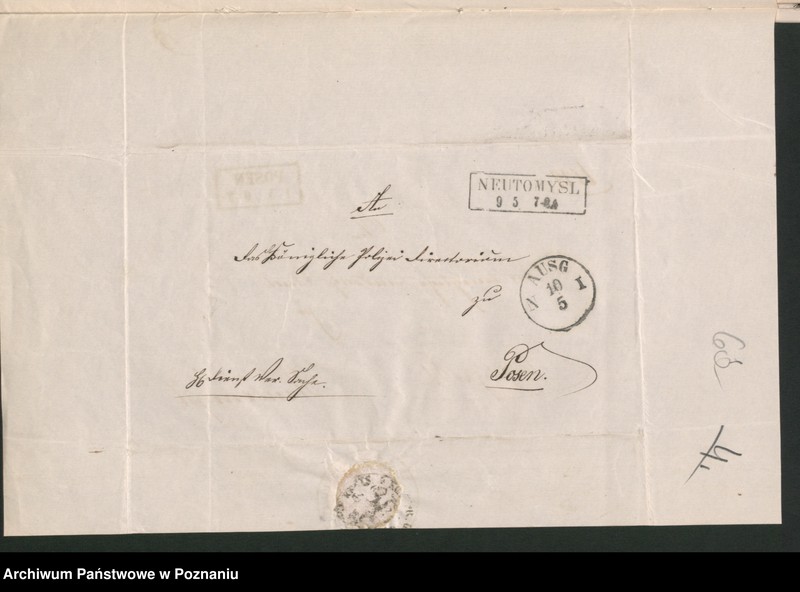 NEUTOMYSL
9 5 7-8A
POSEN
An
das Königliche Polizei Directorium
AUSG
N I
10
5
zu
Posen.
Dienst Sache.
63
4.
Archiwum Państwowe w Poznaniu